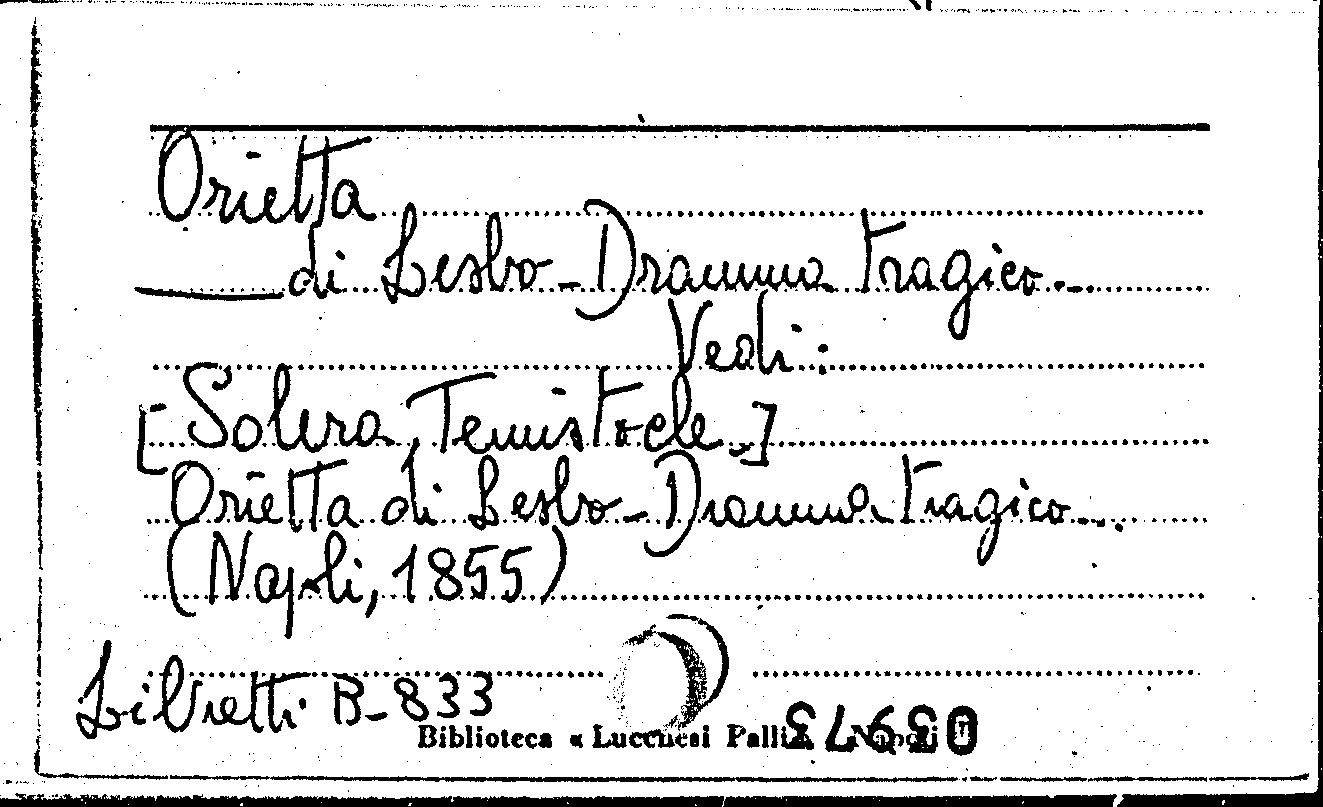 Orietta
di Lesbo - Dramma tragico...
Vedi:
[Solera, Temistocle.]
Orietta di Lesbo - Dramma tragico...
(Napoli, 1855)
Libretti B-833
Biblioteca « Lucchesi Palli» Napoli